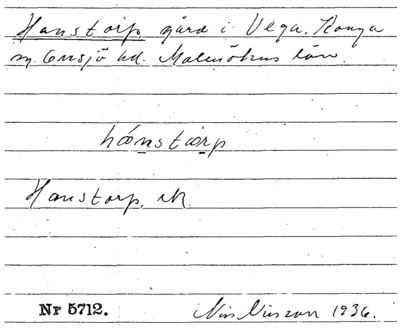 Hanstorp, gård i Vega. Konga
sn. Onsjö hd. Malmöhus län.
hánstårp
Hanstorp. RK.
Nr 5712.
Nils Nilsson 1936.